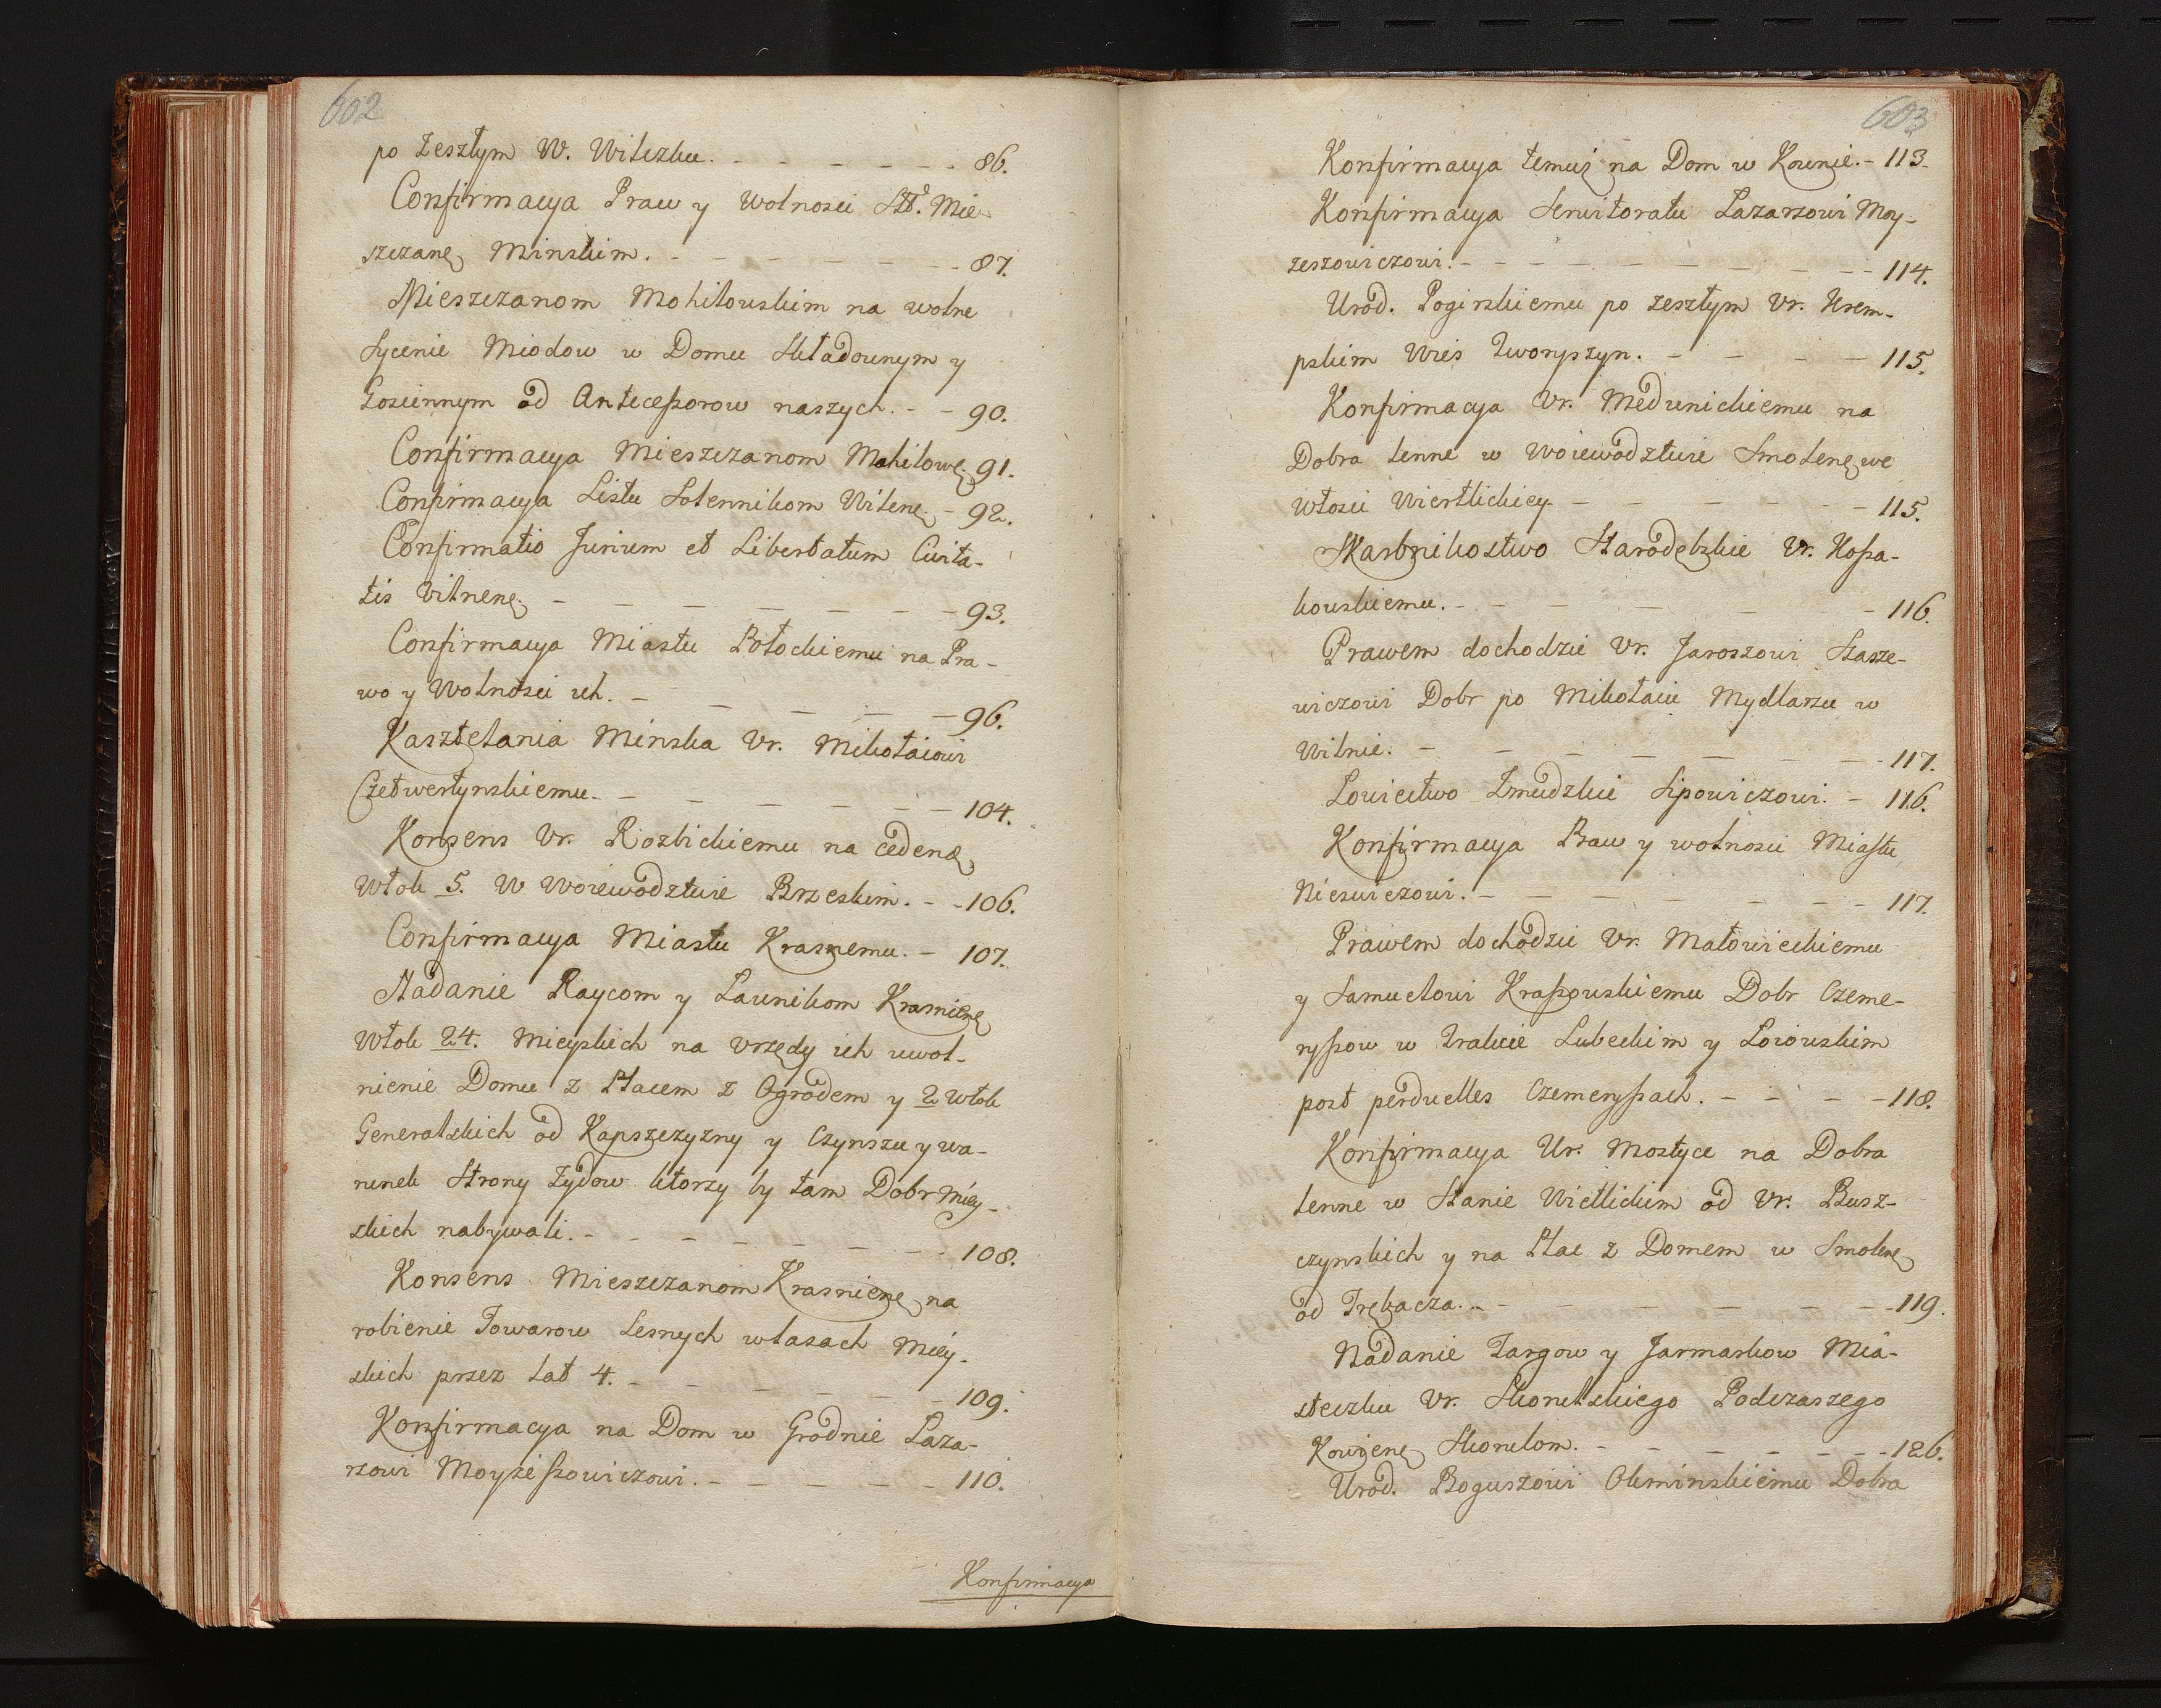 602
po zeszłym W. Witczku. - - - - - - 86.
Confirmacya Praw y Wolnosci Mie-
szczanę Minskim. - - - - - - 87.
Mieszczanom Mohilowskim na wolne
Sycenie Miodow w Domu Składownym y
Gosciennym od Antecessorow naszych. - - 90.
Confirmacya Mieszczanom Mohilowę. 91.
Confirmacya Listu Solennikom Wilenę. - 92.
Confirmatio Jurium et Libertatum Civita-
tis Vilnenę. - - - - - - - 93.
Confirmacya Miastu Połockiemu na Pra-
wo y Wolnosci ich. - - - - - 96.
Kasztelania Minska Vr. Mikołaiowi
Czetwertynskiemu. - - - - - - 104.
Konsens Vr. Rozbickiemu na cedenę
Włok 5. w Woiewodztwie Brzeskim. - - 106.
Confirmacya Miastu Krasnemu. - 107.
Nadanie Raycom y Lawnikom Krasnienę
Włok 24. Mieyskich na Vrzędy ich uwol-
nienie Domu z Placem z Ogrodem y 2 Włok
Generalskich od Kapszczyzny y Czynszu y wa-
runek Strony Zydow ktorzy by tam Dobr Miey-
skich nabywali. - - - - - - - 108.
Konsens Mieszczanom Krasnienę na
robienie Towarow Lesnych w lasach Miey-
skich przez lat 4. - - - - - - 109.
Konfirmacya na Dom w Grodnie Laza-
rzowi Moyzeszowiczowi. - - - - - 110.
Konfirmacya
603
Konfirmacya temuż na Dom w Kownie. - 113.
Konfirmacya Serwitoratu Lazarzowi Moy-
zeszowiczowi. - - - - - - - - 114.
Urod. Pogirskiemu po zeszłym Vr. Krem-
pskim Wies Tworyszyn. - - - - 115.
Konfirmacya Vr. Medunickiemu na
Dobra lenne w Woiewodztwie Smolenę we
Włosci Wiertlickiey - - - - - - 115.
Skarbnikostwo Starodębskie Vr. Kossa-
kowskiemu. - - - - - - - 116.
Prawem dochodzic Vr. Jaroszowi Stasze-
wiczowi Dobr po Mikołaiu Mydlarzu w
Wilnie. - - - - - - - - 117.
Lowiectwo Zmudzkie Lipowiczowi. - 116.
Konfirmacya Praw y wolnosci Miastu
Nieswiezowi. - - - - - - - 117.
Prawem dochodzic Vr. Małowieckiemu
y Samuelowi Krassowskiemu Dobr Czeme-
ryssow w Trakcie Lubeckim y Loiowskim
post perduelles Czemeryssach. - - - - 118.
Konfirmacya Ur. Mostyce na Dobra
lenne w Stanie Wietlickim od Vr. Busz-
czynskich y na Plac z Domem w Smolenę
od Trębacza. - - - - - - - - 119.
Nadanie Targow y Jarmarkow Mia-
steczku Vr. Skorulskiego Podczaszego
Kowienę Skorulom. - - - - - - - 126.
Urod. Boguszowi Okminskiemu Dobra